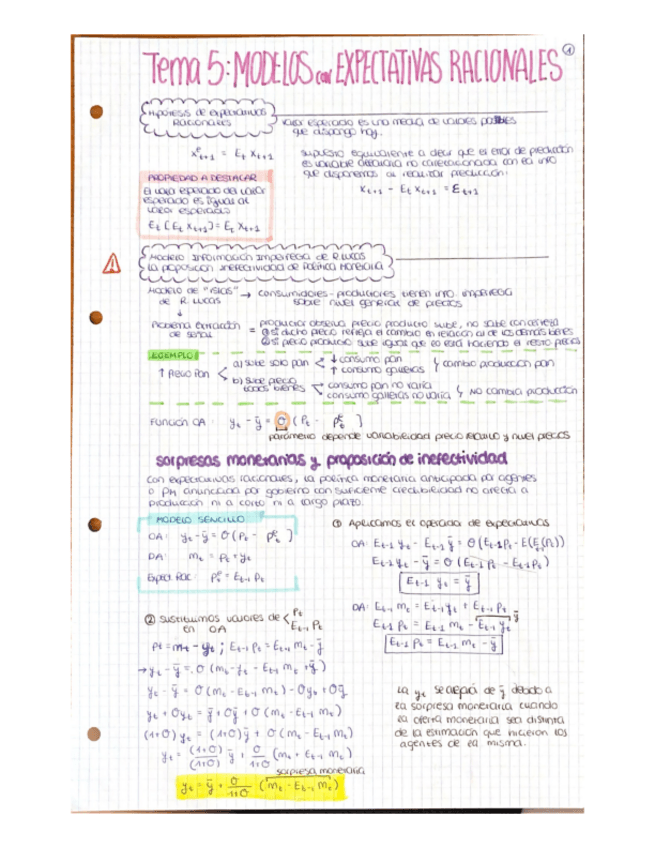 1
Tema 5: MODELOS con EXPECTATIVAS RACIONALES
Hipótesis de expectativas
Racionales
valor esperado es una media de valores posibles
que dispongo hoy.
x^e_{t+1} = E_t x_{t+1}
supuesto equivalente a decir que el error de predicción
es variable aleatoria no correlacionada con la info
que disponemos al realizar predicción:
x_{t+1} - E_t x_{t+1} = ε_{t+1}
PROPIEDAD A DESTACAR
El valor esperado del valor
esperado es igual al
valor esperado
E_t [E_t x_{t+1}] = E_t x_{t+1}
Modelo Información Imperfecta de R. Lucas
La proposición inefectividad de Política Monetaria
Modelo de "islas" → consumidores-productores tienen info. imperfecta
de R. Lucas sobre nivel general de precios
↓
Problema extracción = productor observa precio producto sube, no sabe con certeza
de señal
① si dicho precio refleja el cambio en relación al de los demás bienes
② si precio producto sube igual que lo está haciendo el resto precios
EJEMPLO
↑ Precio Pan
a) sube solo pan ↓ consumo pan
↑ consumo galletas
cambia producción pan
b) sube precio
todos bienes
consumo pan no varía
consumo galletas no varía
NO cambia producción
Función OA: y_t - ȳ = θ (P_t - P^e_t)
parámetro depende variabilidad precio relativo y nivel precios
sorpresas monetarias y proposición de inefectividad
Con expectativas racionales, la política monetaria anticipada por agentes
o PM anunciada por gobierno con suficiente credibilidad no afecta a
producción ni a corto ni a largo plazo.
MODELO SENCILLO
OA: y_t - ȳ = θ (P_t - P^e_t)
DA: m_t = P_t + y_t
Expect Rac: P^e_t = E_{t-1} P_t
① Aplicamos el operador de expectativas
OA: E_{t-1} y_t - E_{t-1} ȳ = θ (E_{t-1} P_t - E(E_t(P_t))
E_{t-1} y_t - ȳ = θ (E_{t-1} P_t - E_{t-1} P_t)
E_{t-1} y_t = ȳ
DA: E_{t-1} m_t = E_{t-1} y_t + E_{t-1} P_t
E_{t-1} P_t = E_{t-1} m_t - E_{t-1} y_t ȳ
E_{t-1} P_t = E_{t-1} m_t - ȳ
② sustituimos valores de P_t
E_{t-1} P_t
en OA
P_t = m_t - y_t ; E_{t-1} P_t = E_{t-1} m_t - ȳ
→ y_t - ȳ = θ (m_t - y_t - E_{t-1} m_t + ȳ)
y_t - ȳ = θ (m_t - E_{t-1} m_t) - θy_t + θȳ
y_t + θy_t = ȳ + θȳ + θ (m_t - E_{t-1} m_t)
(1+θ) y_t = (1+θ) ȳ + θ (m_t - E_{t-1} m_t)
y_t = (1+θ)/(1+θ) ȳ + θ/(1+θ) (m_t + E_{t-1} m_t)
sorpresa monetaria
y_t = ȳ + θ/(1+θ) (m_t - E_{t-1} m_t)
La y_t se aleja de ȳ debido a
la sorpresa monetaria cuando
la oferta monetaria sea distinta
de la estimación que hicieron los
agentes de la misma.